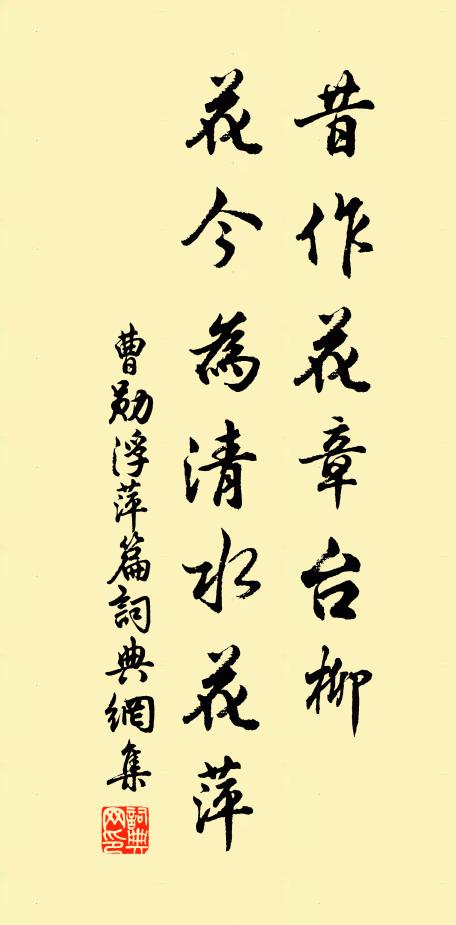 昔作花章台柳
花今為清水花萍
曹勛浮萍篇詞典網集
詞典网印